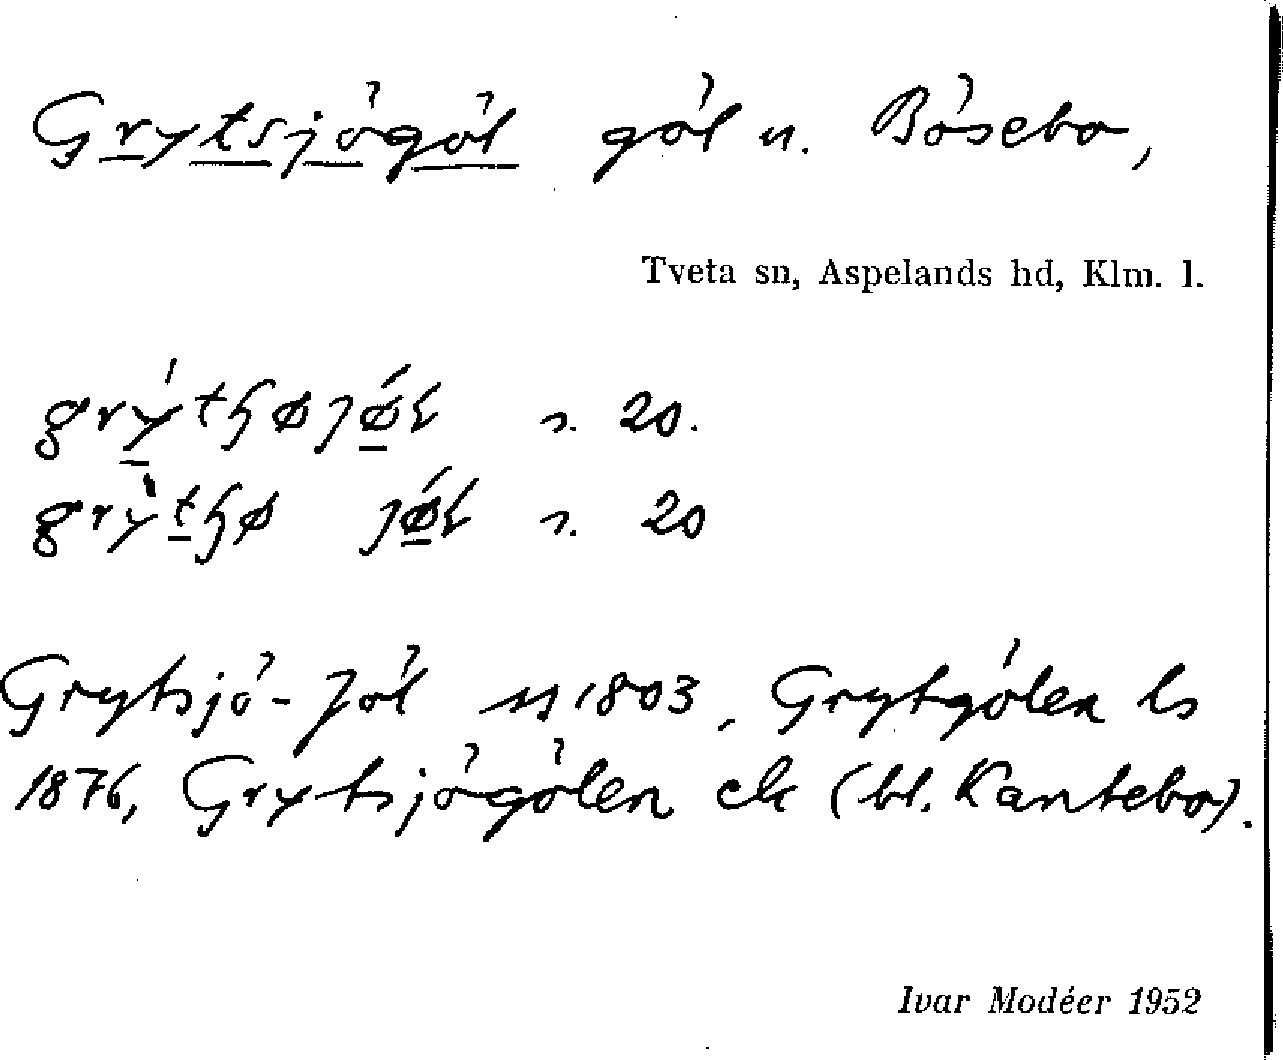 Grytsjögöl göl n. Bösebo,
Tveta sn, Aspelands hd, Klm. l.
s. 20.
s. 20
Grytsjö-Jöl 1803, Grytgölen ls
1876, Grytsjögölen ek (bl. Kantebo).
Ivar Modéer 1952